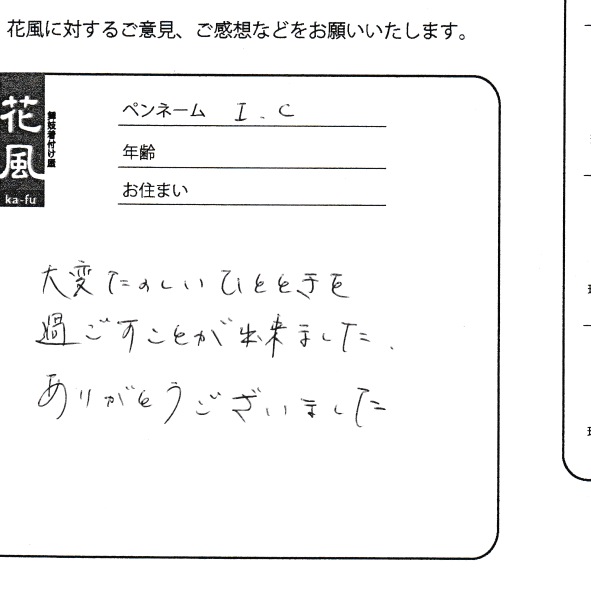 花風に対するご意見、ご感想などをお願いいたします。
花風
舞妓着付け屋
ka-fu
ペンネーム I.C
年齢
お住まい
大変たのしいひとときを
過ごすことが出来ました.
ありがとうございました